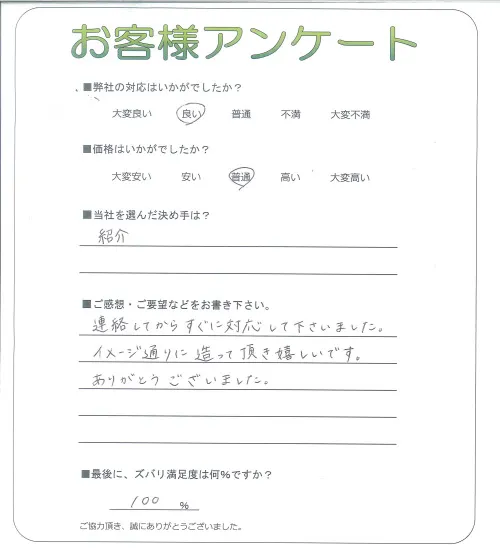 お客様アンケート
■弊社の対応はいかがでしたか？
大変良い 良い 普通 不満 大変不満
■価格はいかがでしたか？
大変安い 安い 普通 高い 大変高い
■当社を選んだ決め手は？
紹介
■ご感想・ご要望などをお書き下さい。
連絡してからすぐに対応して下さいました。
イメージ通りに造って頂き嬉しいです。
ありがとうございました。
■最後に、ズバリ満足度は何%ですか？
100 %
ご協力頂き、誠にありがとうございました。